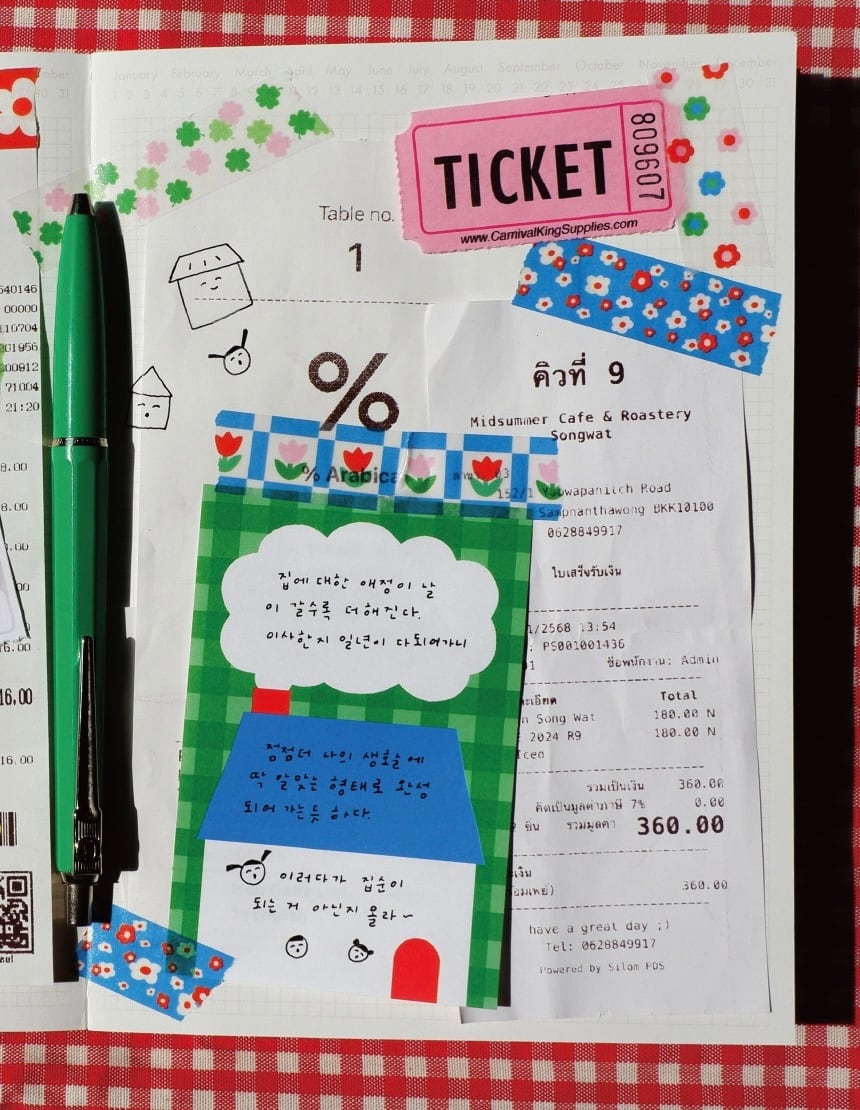 January February March April May June July August September October November December
TICKET
809607
www.CarnivalKingSupplies.com
Table no.
1
%
% Arabica
640146
00000
110704
261956
000912
71004
21:20
8.00
8.00
16.00
16.00
คิวที่ 9
Midsummer Cafe & Roastery
Songwat
152/1 Yaowapanitch Road
Sampnanthawong BKK10100
0628849917
ใบเสร็จรับเงิน
1/2568 13:54
: PS001001436
ชื่อพนักงาน: Admin
Total
n Song Wat 180.00 N
2024 R9 180.00 N
Iced
รวมเป็นเงิน 360.00
คิดเป็นมูลค่าภาษี 7% 0.00
2 ชิ้น รวมมูลค่า 360.00
360.00
have a great day ;)
Tel: 0628849917
Powered by Silom POS
집에 대한 애정이 날
이 갈수록 더해진다.
이사한지 일년이 다되어가니
점점더 나의 생활에
딱 알맞는 형태로 완성
되어 가는듯 하다.
이러다가 집순이
되는 거 아닌지 몰라~